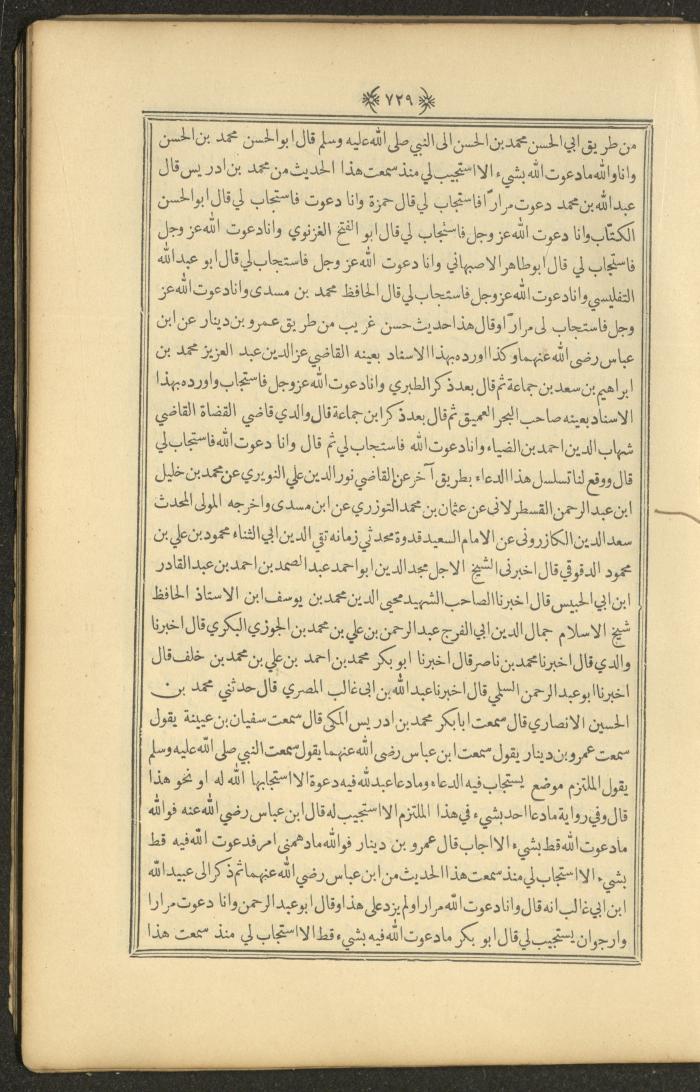 ٧٢٩
من طريق ابي الحسن محمد بن الحسن الى النبي صلى الله عليه وسلم قال ابوالحسن محمد بن الحسن
وانا والله مادعوت الله بشيء الااستجيب لي منذ سمعت هذا الحديث من محمد بن ادريس قال
عبدالله بن محمد دعوت مراراً فاستجاب لي قال حمزة وانا دعوت فاستجاب لي قال ابوالحسن
الكتّاب وانا دعوت الله عز وجل فاستجاب لي قال ابو الفتح الغزنوي وانا دعوت الله عز وجل
فاستجاب لي قال ابوطاهر الاصبهاني وانا دعوت الله عز وجل فاستجاب لي قال ابو عبدالله
التفليسي وانا دعوت الله عز وجل فاستجاب لي قال الحافظ محمد بن مسدى وانا دعوت الله عز
وجل فاستجاب لى مراراً وقال هذا حديث حسن غريب من طريق عمرو بن دينار عن ابن
عباس رضى الله عنهما وكذا اورده بهذا الاسناد بعينه القاضي عز الدين عبد العزيز محمد بن
ابراهيم بن سعد بن جماعة ثم قال بعد ذكر الطبري وانا دعوت الله عز وجل فاستجاب واورده بهذا
الاسناد بعينه صاحب البحر العميق ثم قال بعد ذكر ابن جماعة قال والدي قاضي القضاة القاضي
شهاب الدين احمد بن الضياء وانا دعوت الله فاستجاب لي ثم قال وانا دعوت الله فاستجاب لي
قال ووقع لنا تسلسل هذا الدعاء بطريق آخر عن القاضي نور الدين علي النويري عن محمد بن خليل
ابن عبد الرحمن القسطرلانى عن عثمان بن محمد التوزري عن ابن مسدى واخرجه المولى المحدث
سعد الدين الكازرونى عن الامام السعيد قدوة محدثي زمانه تقي الدين ابي الثناء محمود بن علي بن
محمود الدقوقي قال اخبرنى الشيخ الاجل مجد الدين ابو احمد عبد الصمد بن احمد بن عبد القادر
ابن ابي الحبيس قال اخبرنا الصاحب الشهيد محيى الدين محمد بن يوسف ابن الاستاذ الحافظ
شيخ الاسلام جمال الدين ابي الفرج عبد الرحمن بن علي بن محمد بن الجوزي البكري قال اخبرنا
والدي قال اخبرنا محمد بن ناصر قال اخبرنا ابو بكر محمد بن احمد بن علي بن محمد بن خلف قال
اخبرنا ابو عبد الرحمن السلمي قال اخبرنا عبد الله بن ابى غالب المصري قال حدثني محمد بن
الحسين الانصاري قال سمعت ابا بكر محمد بن ادريس المكى قال سمعت سفيان بن عيينة يقول
سمعت عمرو بن دينار يقول سمعت ابن عباس رضى الله عنهما يقول سمعت النبي صلى الله عليه وسلم
يقول الملتزم موضع يستجاب فيه الدعاء ومادعا عبد لله فيه دعوة الااستجابها الله له او نحو هذا
قال وفي رواية مادعا احد بشيء في هذا الملتزم الااستجيب له قال ابن عباس رضي الله عنه فوالله
مادعوت الله قط بشيء الااجاب قال عمرو بن دينار فوالله مادهمنى امر فدعوت الله فيه قط
بشيء الااستجاب لي منذ سمعت هذا الحديث من ابن عباس رضي الله عنهما ثم ذكر الى عبيد الله
ابن ابي غالب انه قال وانا دعوت الله مرارا ولم يزد على هذا وقال ابو عبد الرحمن وانا دعوت مرارا
وارجوان يستجيب لي قال ابو بكر مادعوت الله فيه بشيء قط الااستجاب لي منذ سمعت هذا